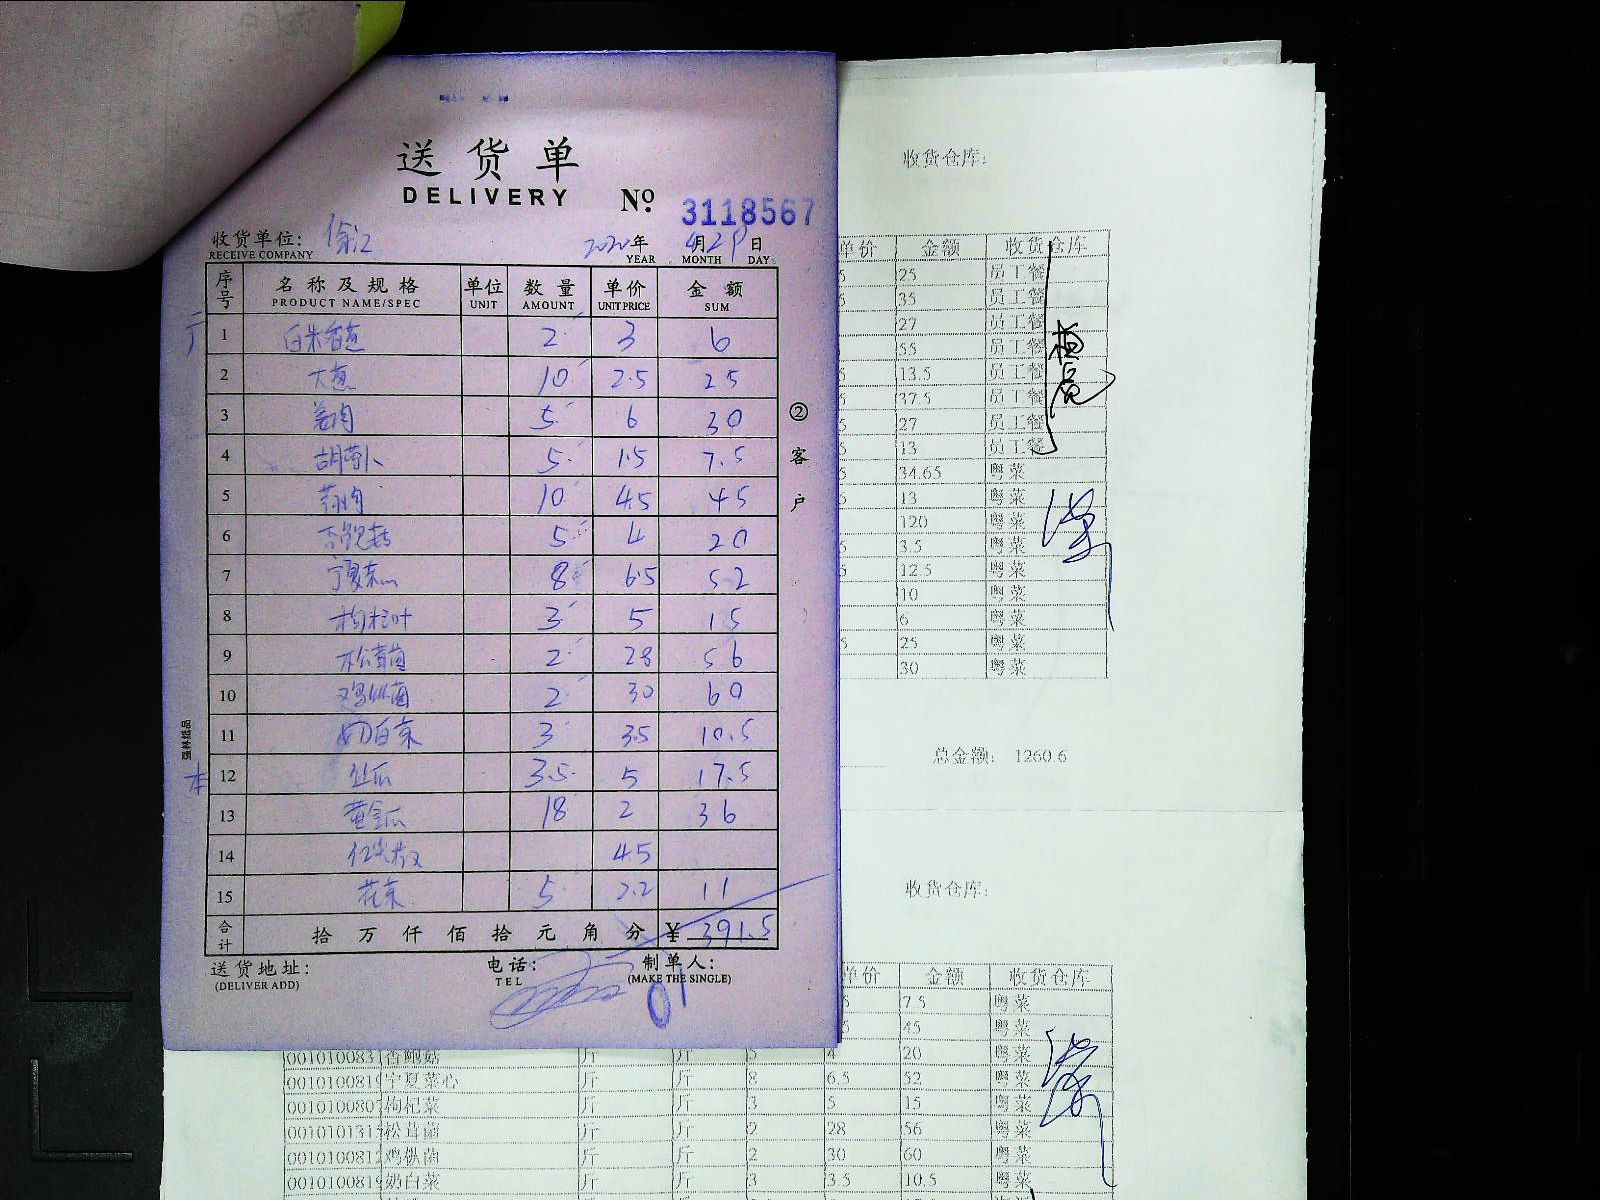 送货单
DELIVERY
№ 3118567
收货单位: 徐汇 2020年 4月29日
RECEIVE COMPANY YEAR MONTH DAY
序号 名称及规格 单位 数量 单价 金额
PRODUCT NAME/SPEC UNIT AMOUNT UNIT PRICE SUM
1 白米香葱 2 3 6
2 大葱 10 2.5 25
3 姜肉 5 6 30
4 胡萝卜 5 1.5 7.5
5 蒜肉 10 4.5 45
6 杏鲍菇 5 4 20
7 宁夏菜心 8 6.5 52
8 枸杞叶 3 5 15
9 松茸菌 2 28 56
10 鸡枞菌 2 30 60
11 奶白菜 3 3.5 10.5
12 丝瓜 3.5 5 17.5
13 黄金瓜 18 2 36
14 红尖椒 4.5
15 花菜 5 2.2 11
合计 拾 万 仟 佰 拾 元 角 分 ¥ 391.5
送货地址: 电话: 制单人:
(DELIVER ADD) TEL (MAKE THE SINGLE)
② 客户
强林纸品
收货仓库:
单价 金额 收货仓库
5 25 员工餐
5 35 员工餐
5 27 员工餐
5 55 员工餐
5 13.5 员工餐
5 37.5 员工餐
5 27 员工餐
5 13 员工餐
5 34.65 粤菜
5 13 粤菜
120 粤菜
5 3.5 粤菜
5 12.5 粤菜
10 粤菜
6 粤菜
5 25 粤菜
30 粤菜
总金额: 1260.6
收货仓库:
单价 金额 收货仓库
5 7.5 粤菜
5 45 粤菜
0010100831 杏鲍菇 斤 斤 5 4 20 粤菜
001010081 宁夏菜心 斤 斤 8 6.5 52 粤菜
001010080 枸杞菜 斤 斤 3 5 15 粤菜
001010131 松茸菌 斤 斤 2 28 56 粤菜
001010081 鸡枞菌 斤 斤 2 30 60 粤菜
001010081 奶白菜 斤 斤 3 3.5 10.5 粤菜